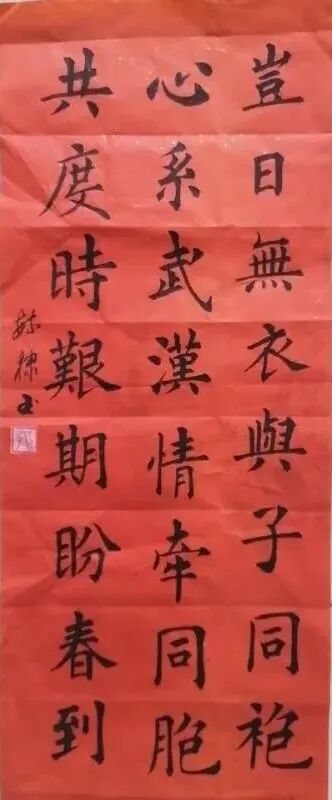 豈日無衣與子同袍
心系武漢情牽同胞
共度時艱期盼春到